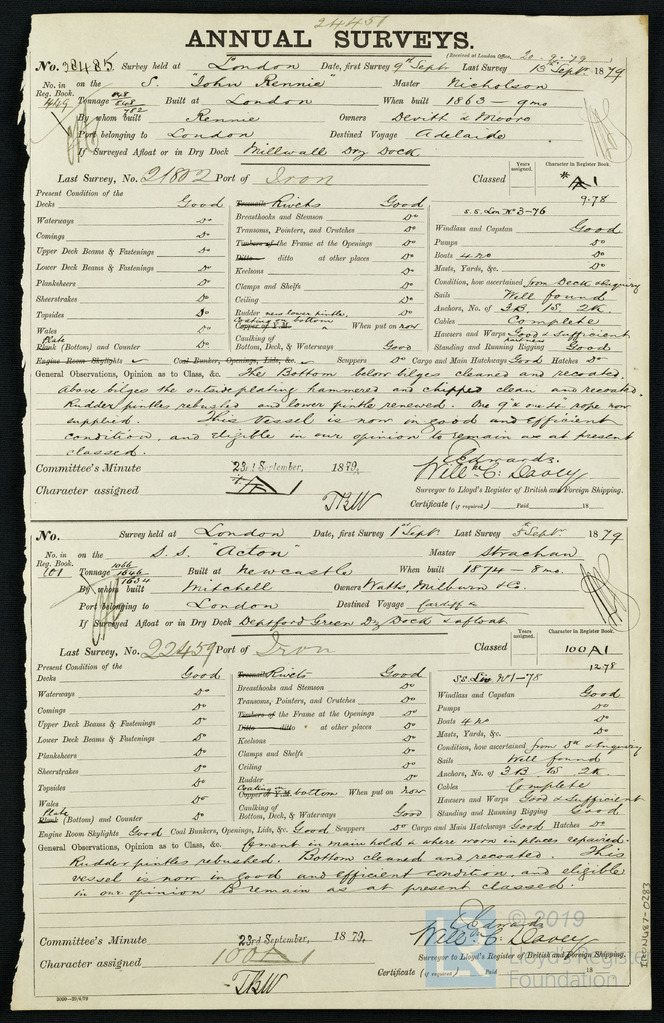 24451
ANNUAL SURVEYS.
(Received at London Office, 20.9.79)
No. 28485 Survey held at London Date, first Survey 9th Septr Last Survey 13 Septr 1879
No. in Reg. Book. 449 on the S. "John Rennie" Master Nicholson
Tonnage 848 848 782 Built at London When built 1863 - 9mo
By whom built Rennie Owners Devitt & Moore
Port belonging to London Destined Voyage Adelaide
If Surveyed Afloat or in Dry Dock Millwall Dry Dock.
Last Survey, No. 21802 Port of Iron Classed Years assigned. Character in Register Book. *A1
9.78
Present Condition of the
Decks Good
Waterways Do
Comings Do
Upper Deck Beams & Fastenings Do
Lower Deck Beams & Fastenings Do
Planksheers Do
Sheerstrakes Do
Topsides Do
Wales Do
Plate
Plank (Bottom) and Counter Do
Treenails Rivets Good
Breasthooks and Stemson Do
Transoms, Pointers, and Crutches Do
Timbers of the Frame at the Openings Do
Ditto ditto at other places Do
Keelsons Do
Clamps and Shelfs Do
Ceiling Do
Rudder new lower pintle. Do
Coating on bottom
Copper or Y.M. When put on now
Caulking of
Bottom, Deck, & Waterways Good
S.S. Lon No 3-76
Windlass and Capstan Good
Pumps Do
Boats 4 no Do
Masts, Yards, &c. Do
Condition, how ascertained from Deck & Enquiry
Sails Well found
Anchors, No. of 3B. 1S. 2K.
Cables Complete
Hawsers and Warps Good & Sufficient
part new
Standing and Running Rigging Good
Engine Room Skylights Coal Bunker, Openings, Lids, &c. Scuppers Do Cargo and Main Hatchways Good Hatches Do
General Observations, Opinion as to Class, &c. The Bottom below bilges cleaned and recoated.
Above bilges the outside plating hammered and chipped clean and recoated.
Rudder pintles rebushed and lower pintle renewed. One 9" & one 4" rope now
supplied. This vessel is now in good and efficient
condition, and eligible in our opinion to remain as at present
classed.
Committee's Minute 23rd September, 1879.
Character assigned *A1
TBW
J. Edwards.
Willm C: Davey
Surveyor to Lloyd's Register of British and Foreign Shipping.
Certificate (if required) Paid 18
No. Survey held at London Date, first Survey 1st Septr Last Survey 5th Septr 1879
No. in Reg. Book. 101 on the S.S. "Acton" Master Strachan
Tonnage 1066 1646 1634 Built at Newcastle When built 1874 - 8mo.
By whom built Mitchell Owners Watts, Milburn & Co.
Port belonging to London Destined Voyage Cardiff &
If Surveyed Afloat or in Dry Dock Deptford Green Dry Dock & afloat
Last Survey, No. 22459 Port of Iron Classed Years assigned. Character in Register Book. 100A1
12.78
Present Condition of the
Decks Good
Waterways Do
Comings Do
Upper Deck Beams & Fastenings Do
Lower Deck Beams & Fastenings Do
Planksheers Do
Sheerstrakes Do
Topsides Do
Wales Do
Plate
Plank (Bottom) and Counter Do
Treenails Rivets Good
Breasthooks and Stemson Do
Transoms, Pointers, and Crutches Do
Timbers of the Frame at the Openings Do
Ditto ditto at other places Do
Keelsons Do
Clamps and Shelfs Do
Ceiling Do
Rudder Do
Coating on
Copper or Y.M. bottom When put on now
Caulking of
Bottom, Deck, & Waterways Good
SS. Liv No1-78
Windlass and Capstan Good
Pumps Do
Boats 4 no Do
Masts, Yards, &c. Do
Condition, how ascertained from Dk & Enquiry
Sails Well found
Anchors, No. of 3B. 1S. 2K.
Cables Complete
Hawsers and Warps Good & Sufficient
Standing and Running Rigging Good
Engine Room Skylights Good Coal Bunkers, Openings, Lids, &c. Good Scuppers Do Cargo and Main Hatchways Good Hatches Do
General Observations, Opinion as to Class, &c. Cement in main hold & where worn in places repaired.
Rudder pintles rebushed. Bottom cleaned and recoated. This
vessel is now in good and efficient condition, and eligible
in our opinion to remain as at present classed.
Committee's Minute 23rd September, 1879.
Character assigned 100A1
TBW
J. Edwards
Willm C: Davey
Surveyor to Lloyd's Register of British and Foreign Shipping.
Certificate (if required) Paid 18
2000-29/4/79
© 2019
Lloyd's Register
Foundation
LRF-0283